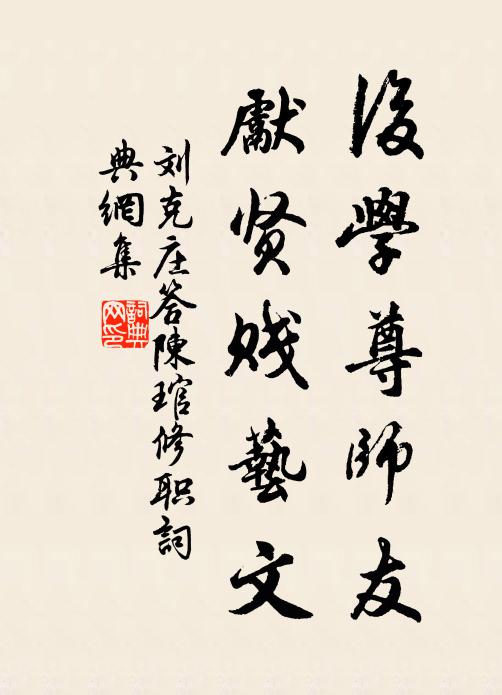 後學尊師友
獻贤賤藝文
刘克庄答陳琯修职詞
典網集
詞典網印